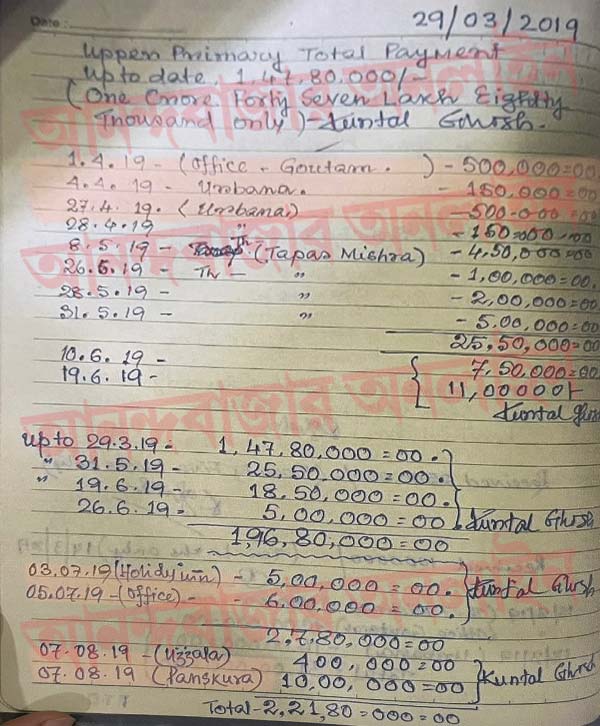 Date :
29/03/2019
Upper Primary Total Payment
Up to date 1,47,80.000/-
(One Crore Forty Seven Laxh Eighty
Thousand only)-Kuntal Ghosh.
1.4.19 - (Office - Goutam. ) - 500,000=00
4.4.19 - Urnbana. - 150,000=00
27.4.19. (Urnbana) - 500-000=00
28.4.19 " - 150=000-00
8.5.19 - Th (Tapas Mishra) - 4,50,000=00
26.5.19 - Th - " - 1,00,000=00.
28.5.19 - " - 2,00,000=00
31.5.19 - " - 5.00,000=00
25,50,000=00
10.6.19 - 7,50.000=00
19.6.19 - 11,00000/-
Kuntal Ghosh
Up to 29.3.19 - 1,47,80,000=00.
" 31.5.19 - 25,50,000=00.
" 19.6.19 - 18,50,000=00
26.6.19 - 5,00,000=00 Kuntal Ghosh
1,96,80,000=00
03.07.19 (Holidyinn) - 5,00,000=00. Kuntal Ghosh
05.07.19 - (Office) - 6.00,000=00.
2,7,80,000=00
07.08.19 - (Uzzala) 400,000=00
07.08.19 (Panskura) 10,00,000=00 Kuntal Ghosh
Total - 2,21,80=000=00
আনন্দবাজার অনলাইন